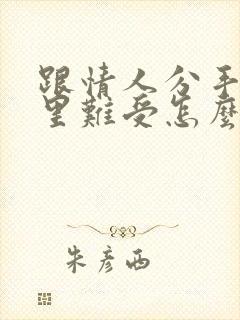 跟情人分手
里難受怎麼
朱彥西